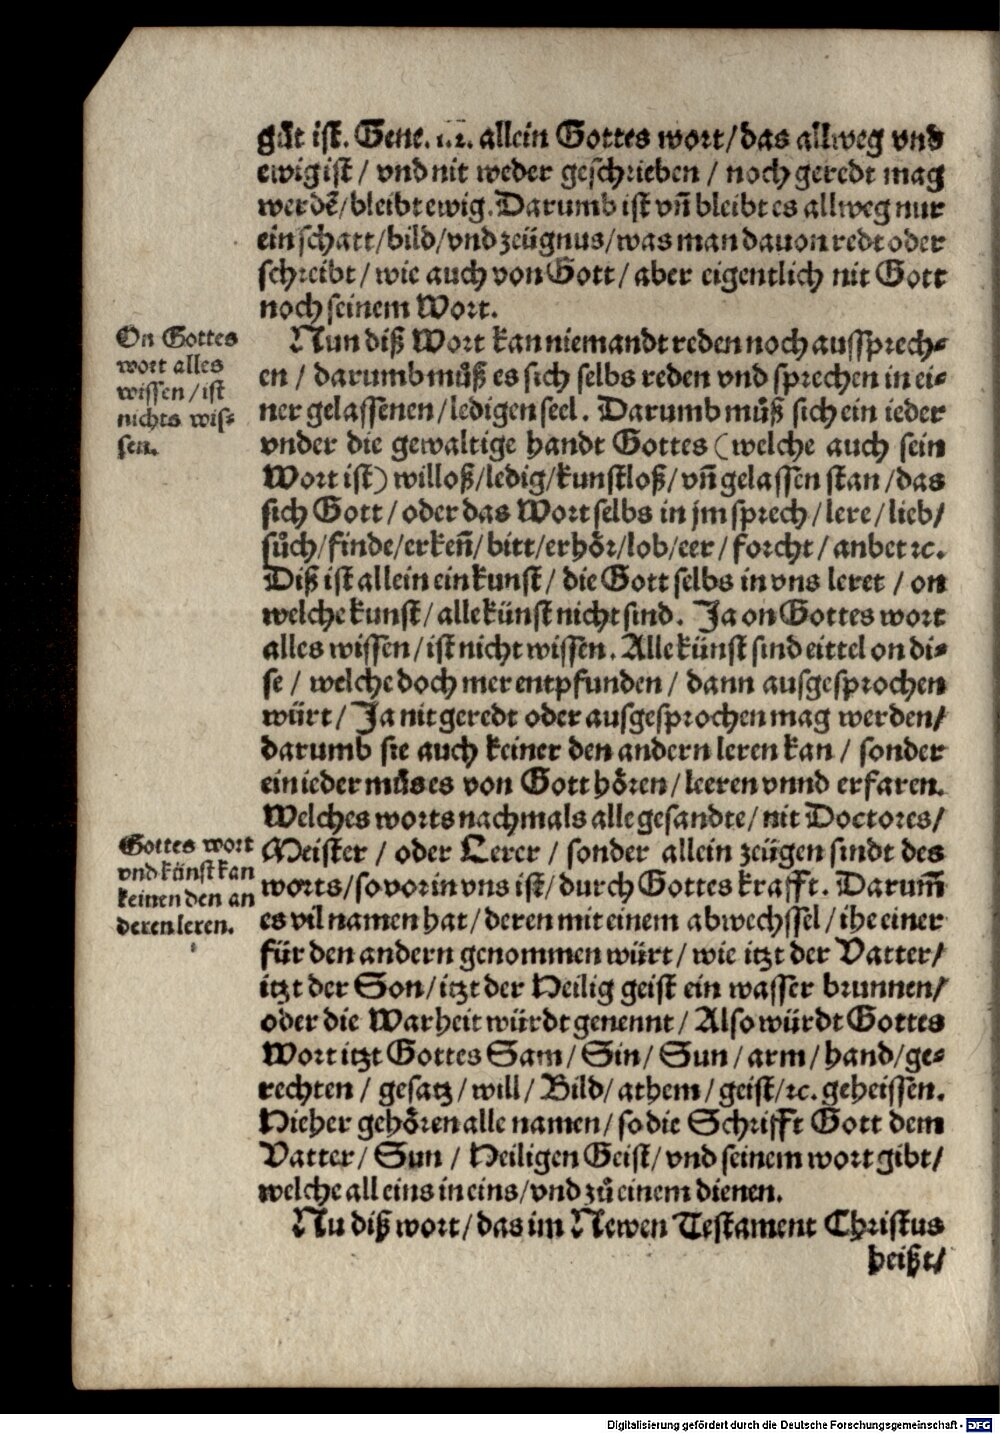 gůt ist. Gene. i.2. allein Gottes wort/das allweg vnd
ewig ist / vnd nit weder geschrieben / noch geredt mag
werdē/bleibt ewig. Darumb ist vñ bleibt es allweg nur
ein schatt/bild/vnd zeügnus/was man dauon redt oder
schreibt / wie auch von Gott / aber eigentlich nit Gott
noch seinem Wort.
On Gottes
wort alles
wissen / ist
nichts wis-
sen.
Nun diß Wort kan niemandt reden noch aussprech-
en / darumb můß es sich selbs reden vnd sprechen in ei-
ner gelassenen/ledigen seel. Darumb můß sich ein ieder
vnder die gewaltige handt Gottes (welche auch sein
Wort ist) willoß/ledig/kunstloß/vñ gelassen stan /das
sich Gott / oder das Wort selbs in jm sprech / lere / lieb/
sůch/finde/erkeñ/bitt/erhör/lob/eer / forcht / anbet ꝛc.
Diß ist allein ein kunst / die Gott selbs in vns leret / on
welche kunst / alle künst nicht sind. Ja on Gottes wort
alles wissen/ist nicht wissen. Alle künst sind eittel on di-
se / welche doch mer entpfunden / dann ausgesprochen
würt / Ja nit geredt oder ausgesprochen mag werden/
darumb sie auch keiner den andern leren kan / sonder
ein ieder můs es von Gott hören / leeren vnnd erfaren.
Welches worts nachmals alle gesandte / nit Doctores/
Gottes wort
vnd künst kan
keinen den an
deren leren.
Meister / oder Lerer / sonder allein zeügen sindt des
worts/so vor in vns ist/durch Gottes krafft. Darum̄
es vil namen hat / deren mit einem abwechssel / ihe einer
für den andern genommen würt / wie itzt der Vatter/
itzt der Son/itzt der Heilig geist ein wasser brunnen/
oder die Warheit würdt genennt / Also würdt Gottes
Wort itzt Gottes Sam / Sin / Sun / arm / hand/ge-
rechten / gesatz / will / Bild/ athem / geist/ꝛc. geheissen.
Hieher gehören alle namen / so die Schrifft Gott dem
Vatter / Sun / Heiligen Geist/ vnd seinem wort gibt/
welche all eins in eins/vnd zů einem dienen.
Nu diß wort/das im Newen Testament Christus
heißt/
Digitalisierung gefördert durch die Deutsche Forschungsgemeinschaft - DFG